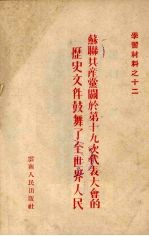 學習材料之十二
蘇聯共產黨關於第十九次代表大會的
歷史文件鼓舞了全世界人民
雲南人民出版社